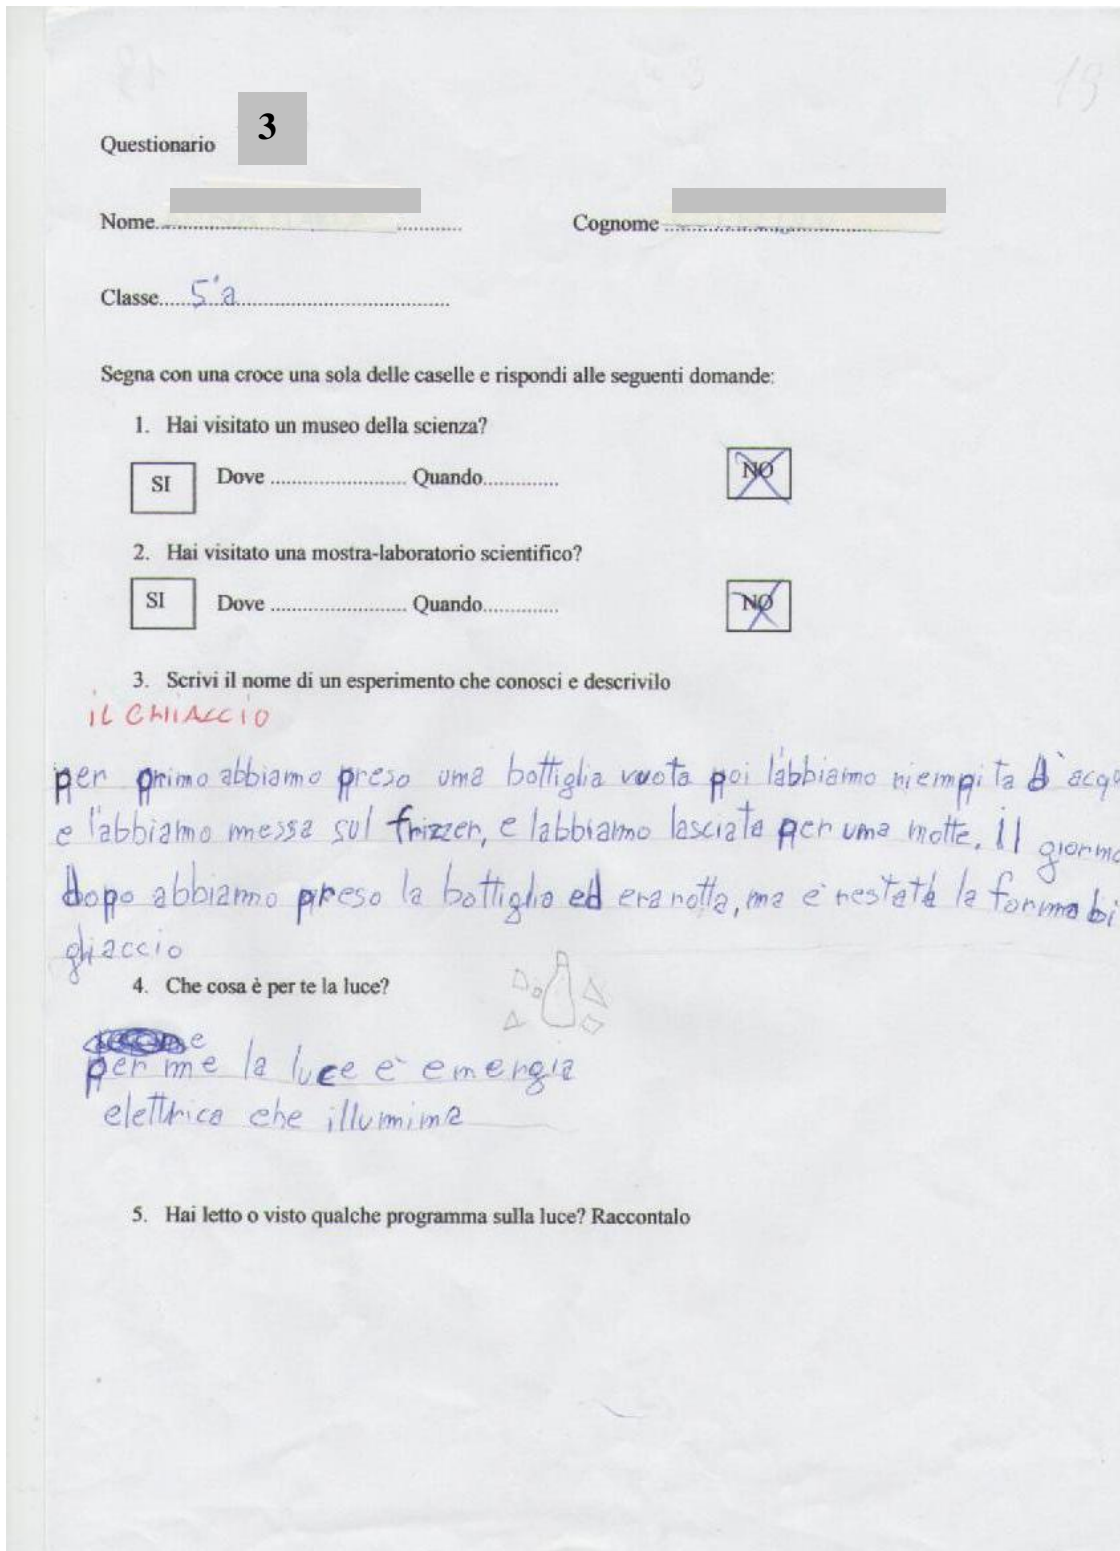 19
Questionario 3
Nome.................................................... Cognome ..............................................
Classe.....5'a...............................................
Segna con una croce una sola delle caselle e rispondi alle seguenti domande:
1. Hai visitato un museo della scienza?
SI Dove ........................ Quando............. NO
2. Hai visitato una mostra-laboratorio scientifico?
SI Dove ........................ Quando............. NO
3. Scrivi il nome di un esperimento che conosci e descrivilo
iL GHIACCIO
per primo abbiamo preso una bottiglia vuota poi l'abbiamo riempita d'acqu
e l'abbiamo messa sul frizzer, e labbiamo lasciata per una notte. Il giorno
dopo abbiamo preso la bottiglia ed era rotta, ma è restata la forma bi
ghiaccio
4. Che cosa è per te la luce?
per me la luce è energia
elettrica che illumina
5. Hai letto o visto qualche programma sulla luce? Raccontalo